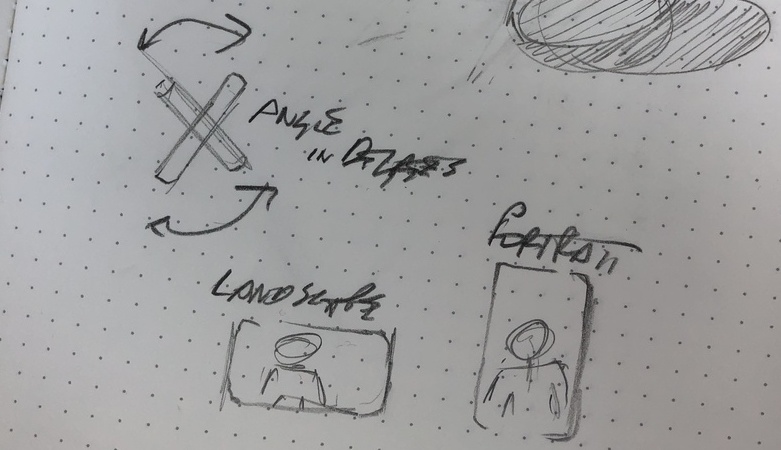 ANGLE
IN DEGREES
PORTRAIT
LANDSCAPE